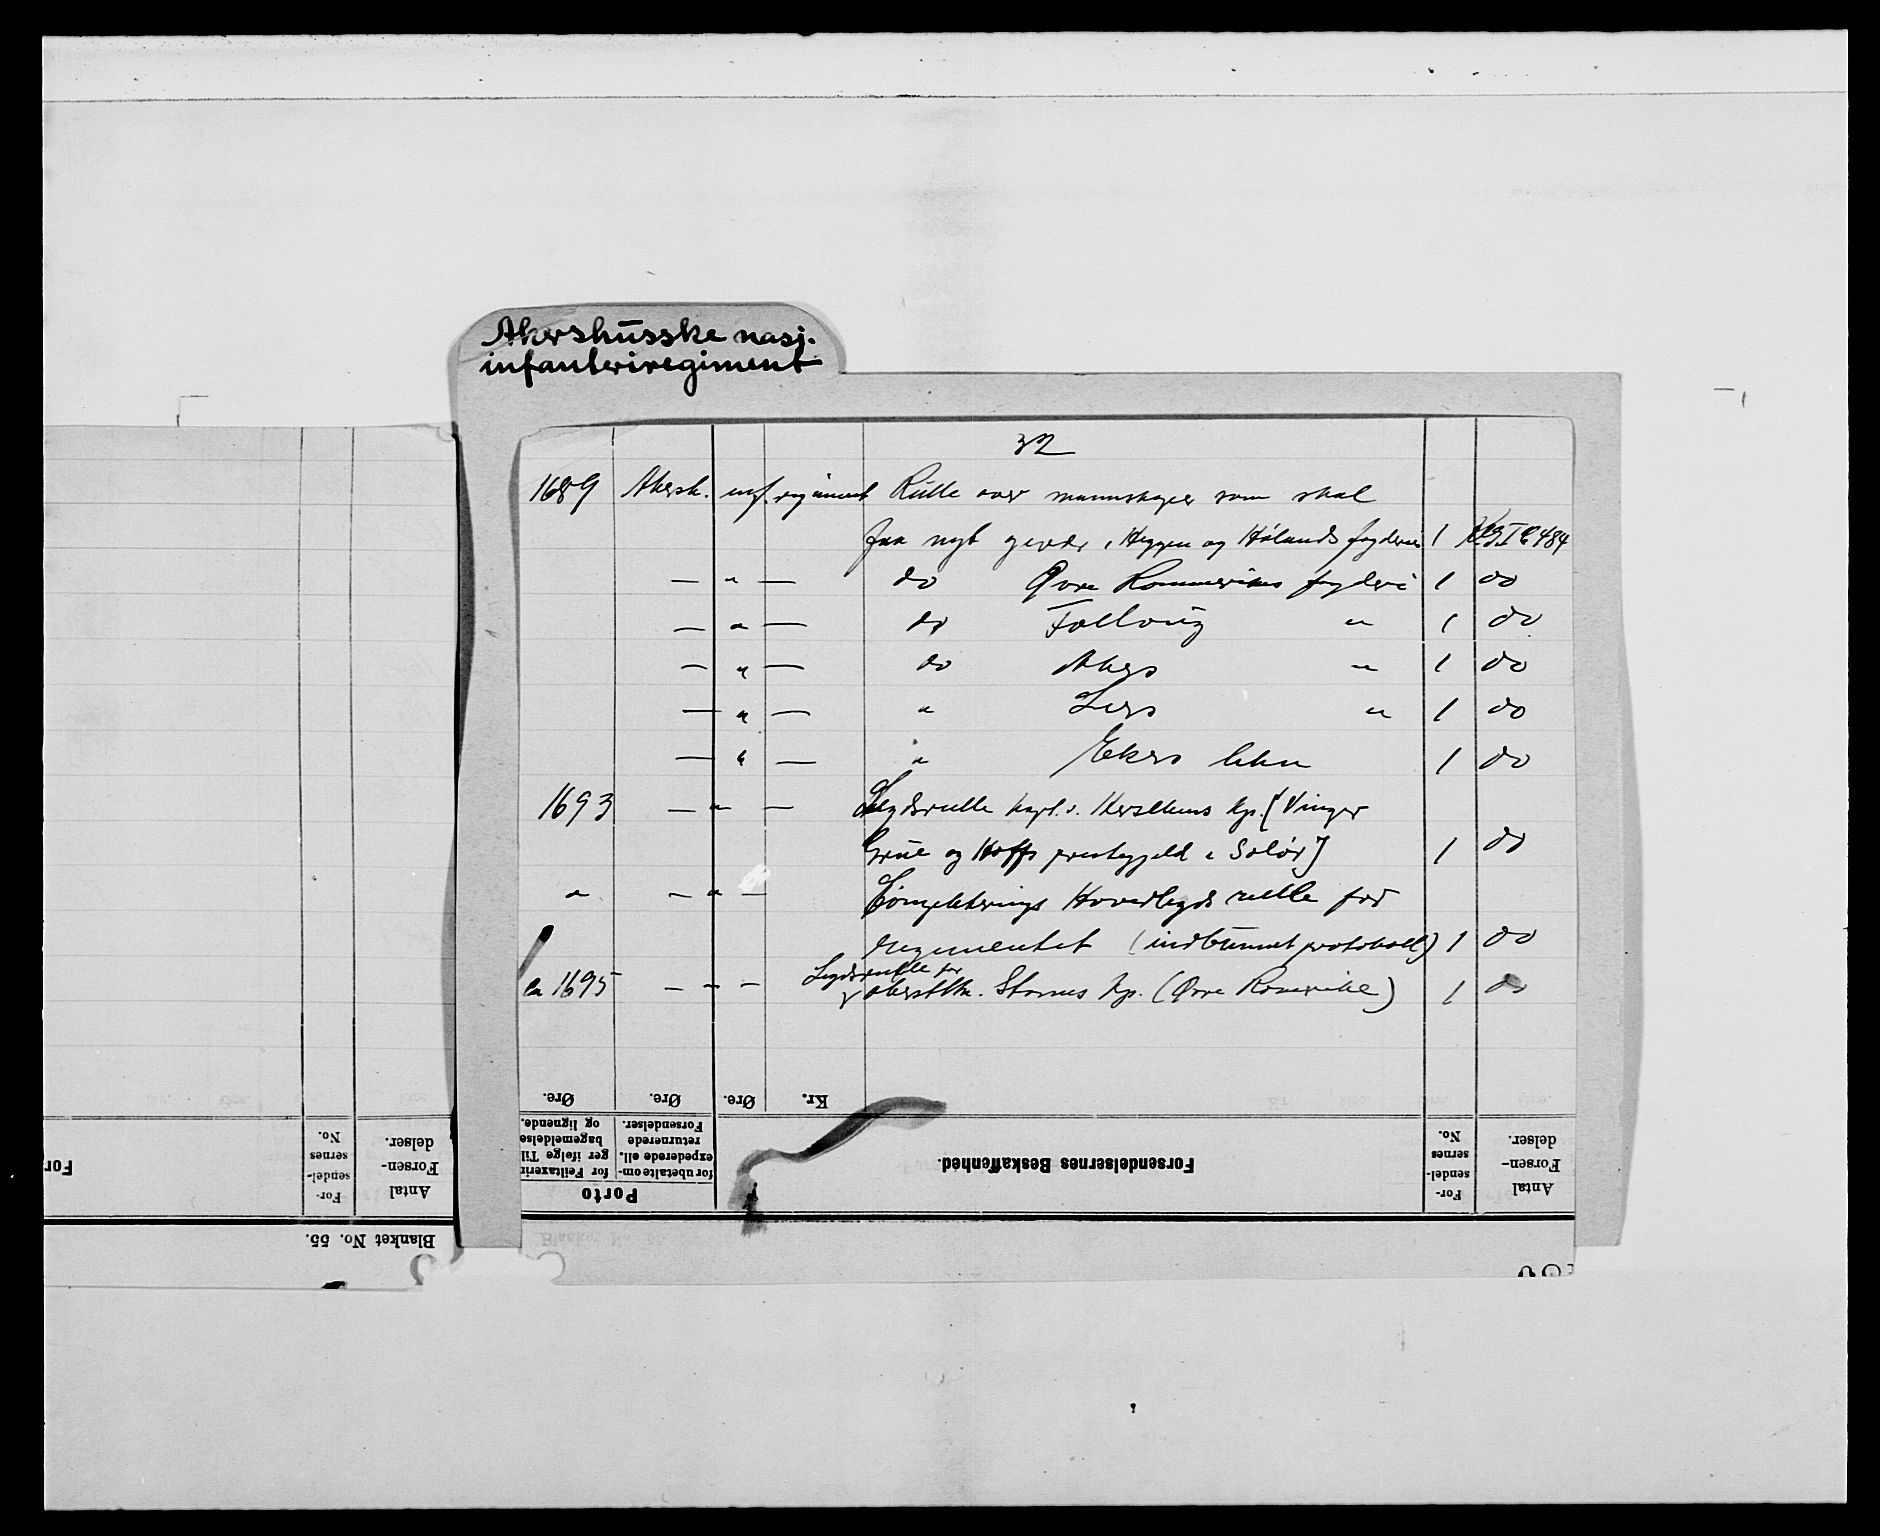 Akershusske nasj.
infanteriregiment
32
1689 Akersh. inf. regiment Rulle over mannskaper som skal
faa nyt gevær i Heggen og Hølands fogderier 1 484
— " — do Øvre Rommerikes fogderi 1 do
— " — do Folloug " 1 do
— " — do Akers " 1 do
— " — " Liers " 1 do
— " — " Ekers len 1 do
1693 — " — Lægdsrulle kapt. v. Kp. (Vinger
Grue og Hoffs prestegjeld i Solør) 1 do
" — " — Completterings Hovedlegds rulle for
regimentet (indbunnet protokoll) 1 do
ca 1695 — " — Legdsrulle for
oberstltn. Storms Kp. (Øvre Romerike) 1 do
Øre. Øre. Øre. Kr.
Porto
for Feiltaxerin
ger ifølge Til
bagemeldelse
og lignende.
for ubetalte om-
expederede ell.
returnerede
Forsendelser.
Forsendelsernes Beskaffenhed.
For-
sendel-
sernes
No.
Antal
Forsen-
delser.
For
For-
sendel-
sernes
No.
Antal
Forsen-
delser.
Blanket No. 55.